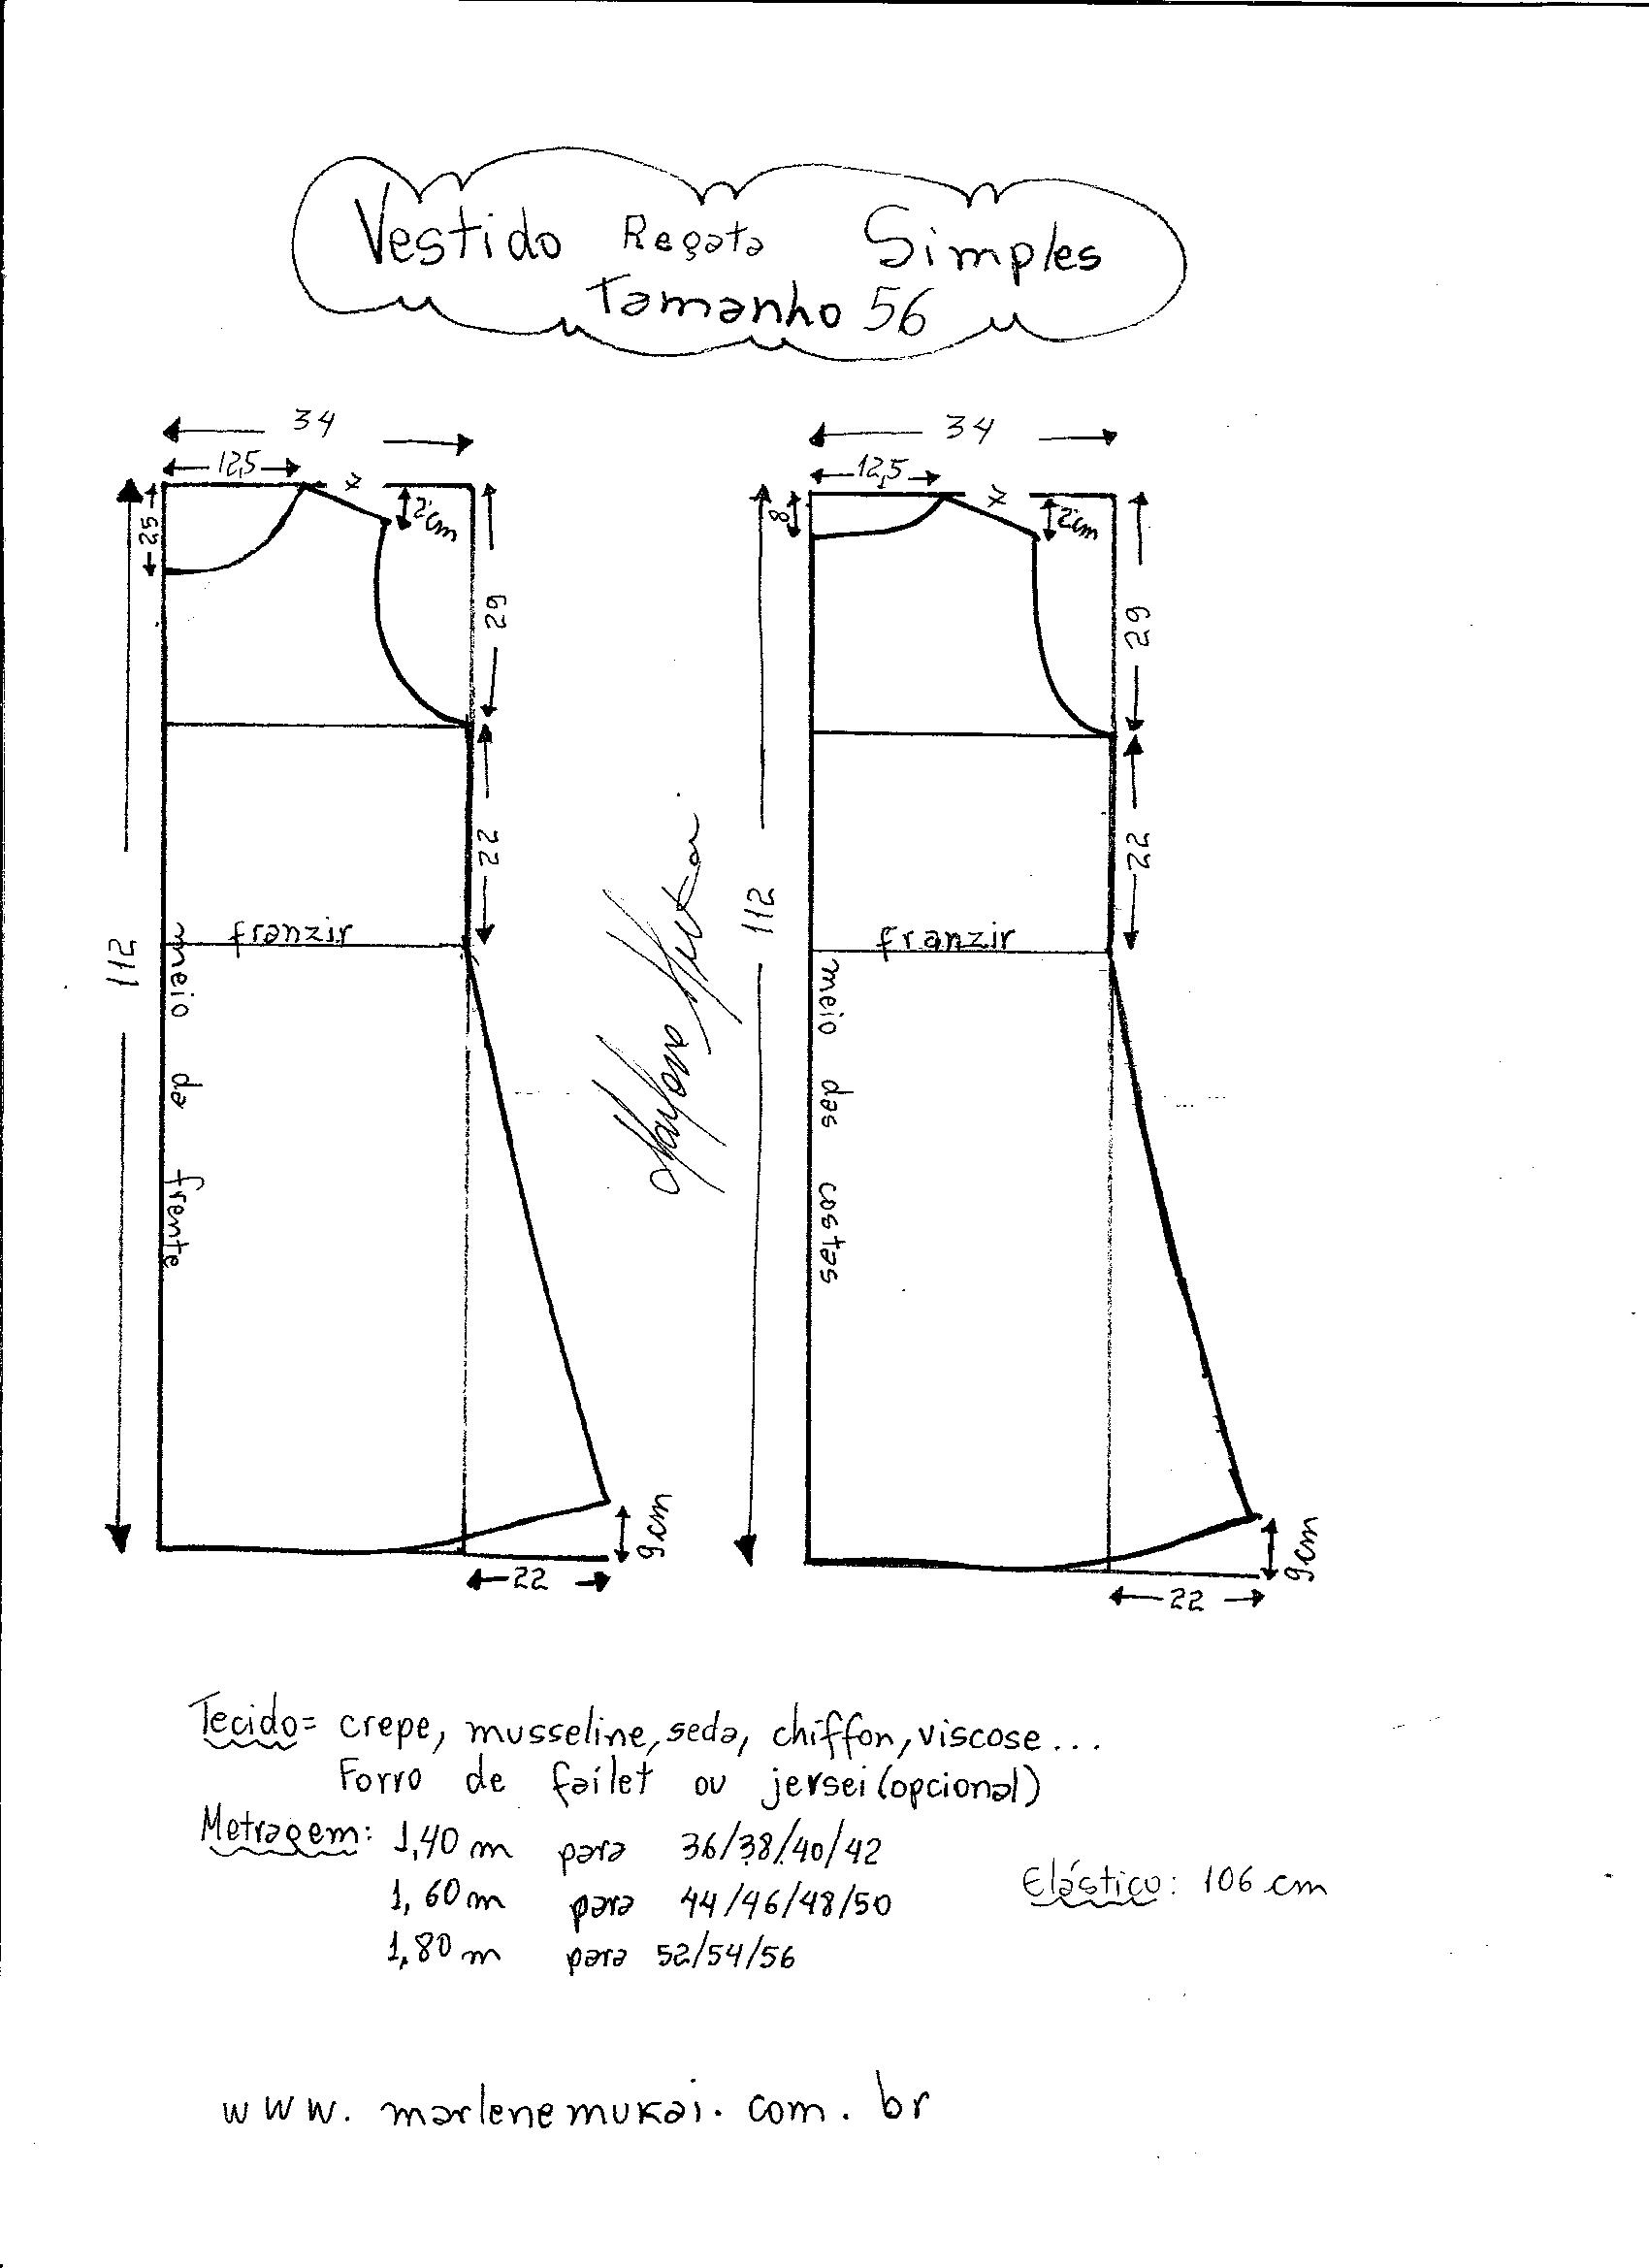 Vestido Regata Simples
Tamanho 56
34
12,5
7
2cm
25
29
22
112
franzir
meio da frente
9cm
22
34
12,5
7
2cm
8
29
22
112
franzir
meio das costas
9cm
22
Tecido= crepe, musseline, seda, chiffon, viscose...
Forro de failet ou jersei (opcional)
Metragem: 1,40 m para 36/38/40/42
1,60 m para 44/46/48/50
Elástico: 106 cm
1,80 m para 52/54/56
www.marlenemukai.com.br